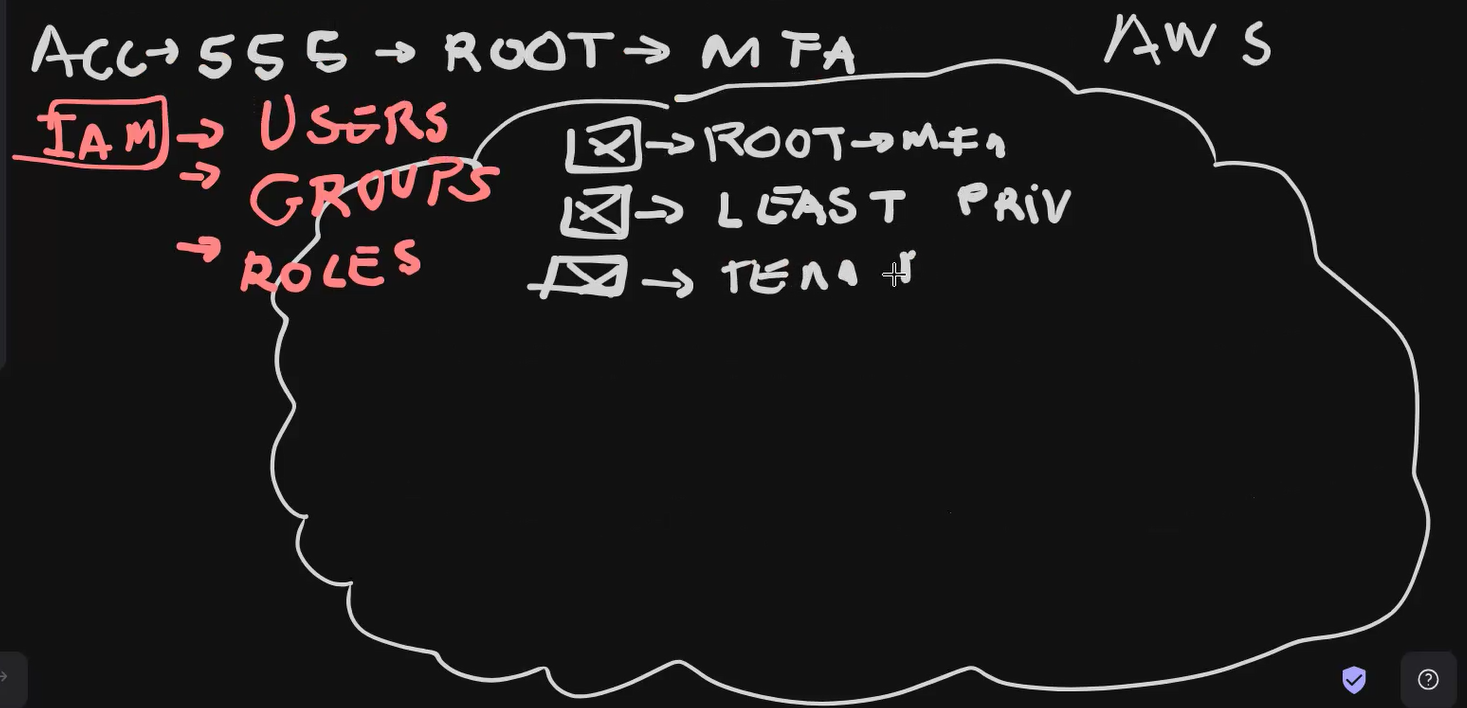 ACC→555→ROOT→MFA
AWS
IAM→USERS
→GROUPS
→ROLES
→ROOT→MFA
→LEAST PRIV
→